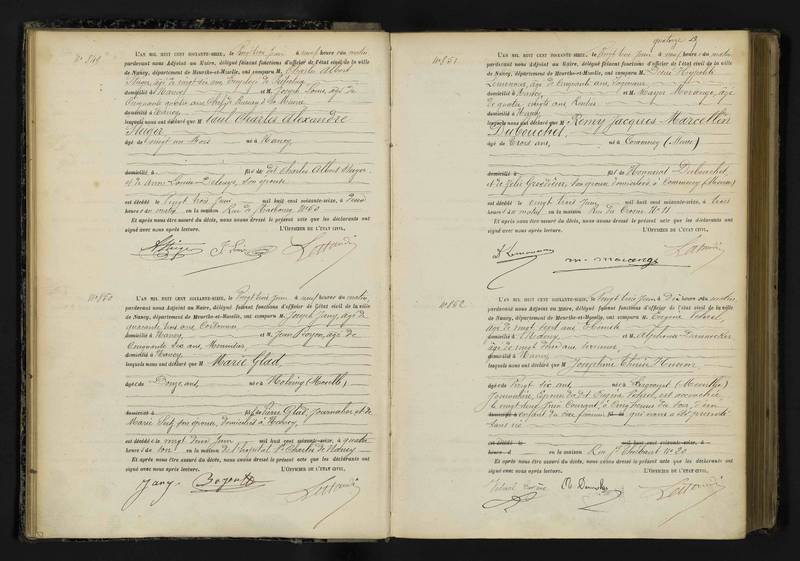 No 849
L'AN MIL HUIT CENT SOIXANTE-SEIZE, le Vingt trois Juin à neuf heures du matin
pardevant nous Adjoint au Maire, délégué faisant fonctions d'officier de l'état civil de la ville
de Nancy, département de Meurthe-et-Moselle, ont comparu M. Charles Albert
Steiger, âgé de vingt six ans
domicilié à Nancy et M. Joseph âgé de
Cinquante ans
domicilié à Nancy
lesquels nous ont déclaré que M Paul Charles Alexandre
Steiger
âgé de vingt un Mois né à Nancy
domicilié à fils de dit Charles Albert Steiger
et de Anne Louise son épouse
est décédé le vingt trois Juin mil huit cent soixante-seize, à deux
heures du matin, en la maison Rue No 60
Et après nous être assuré du décès, nous avons dressé le présent acte que les déclarants ont
signé avec nous après lecture. L'OFFICIER DE L'ÉTAT CIVIL,
A Steiger
No 850
L'AN MIL HUIT CENT SOIXANTE-SEIZE, le Vingt trois Juin à neuf heures du matin,
pardevant nous Adjoint au Maire, délégué faisant fonctions d'officier de l'état civil de la ville
de Nancy, département de Meurthe-et-Moselle, ont comparu M. Joseph Jany, âgé de
quarante trois ans Cordonnier
domicilié à Nancy et M. Jean âgé de
Cinquante six ans, Menuisier
domicilié à Nancy
lesquels nous ont déclaré que M Marie Glad,
âgée de Douze ans, née à (Moselle)
domicilié à fille de Pierre Glad, Journalier et de
Marie son épouse, domiciliés à
est décédée le vingt deux Juin mil huit cent soixante-seize, à quatre
heures du soir en la maison de l'hôpital St Charles de Nancy
Et après nous être assuré du décès, nous avons dressé le présent acte que les déclarants ont
signé avec nous après lecture. L'OFFICIER DE L'ÉTAT CIVIL,
Jany
quatorze
No 851
L'AN MIL HUIT CENT SOIXANTE-SEIZE, le Vingt trois Juin à neuf heures du matin,
pardevant nous Adjoint au Maire, délégué faisant fonctions d'officier de l'état civil de la ville
de Nancy, département de Meurthe-et-Moselle, ont comparu M. Hippolyte
âgé de Cinquante ans,
domicilié à Nancy et M. Mayer Morange, âgé
de quatre vingts ans Rentier
domicilié à Nancy
lesquels nous ont déclaré que M Remy Jacques Marcellin
Dubouchet,
âgé de Trois ans, né à Commercy (Meuse)
domicilié à fils de Honorat Dubouchet,
et de son épouse, domiciliés à Commercy (Meuse)
est décédé le vingt trois Juin mil huit cent soixante-seize, à trois
heures du matin, en la maison Rue No 11
Et après nous être assuré du décès, nous avons dressé le présent acte que les déclarants ont
signé avec nous après lecture. L'OFFICIER DE L'ÉTAT CIVIL,
m. morange
No 852
L'AN MIL HUIT CENT SOIXANTE-SEIZE, le Vingt trois Juin à Dix heures du matin,
pardevant nous Adjoint au Maire, délégué faisant fonctions d'officier de l'état civil de la ville
de Nancy, département de Meurthe-et-Moselle, ont comparu M. Eugène
âgé de vingt sept ans
domicilié à Nancy et M. Alphonse
âgé de vingt trois ans
domicilié à Nancy
lesquels nous ont déclaré que M Joséphine
âgée de Vingt six ans née à (Meurthe)
Journalière, épouse du dit Eugène est accouchée
le vingt deux Juin Courant, à Cinq heures du soir, d'un
enfant du sexe féminin qui nous a été présenté
sans vie
est décédé le mil huit cent soixante-seize, à
heures d en la maison Rue St Thiébaut No 20
Et après nous être assuré du décès, nous avons dressé le présent acte que les déclarants ont
signé avec nous après lecture. L'OFFICIER DE L'ÉTAT CIVIL,